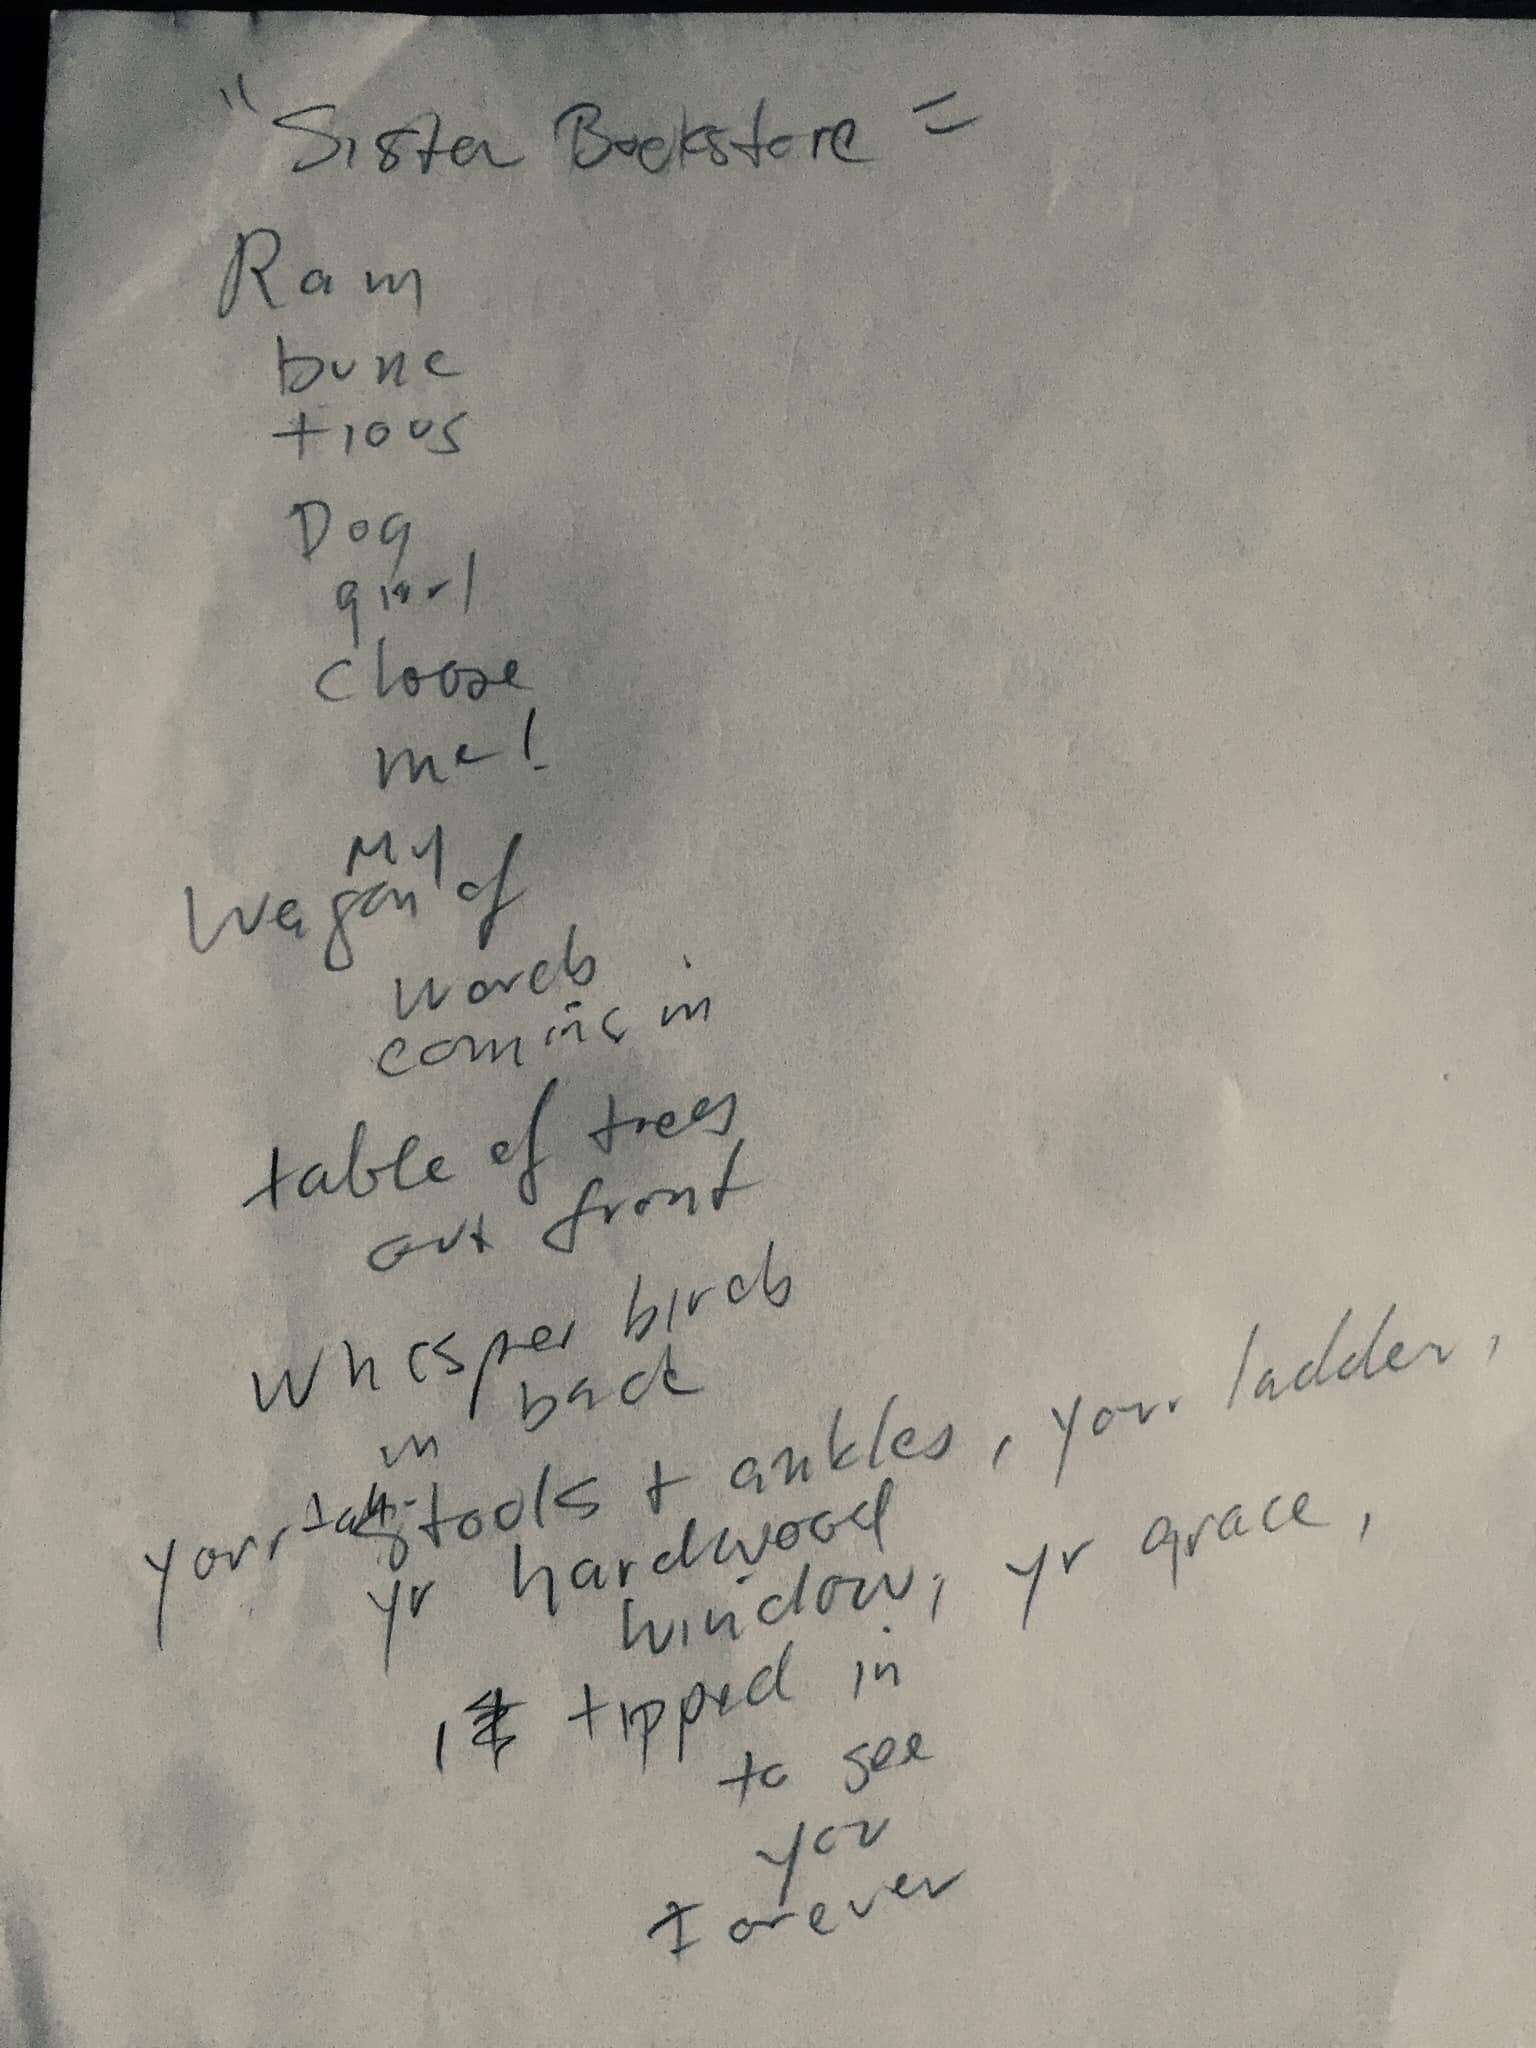 "Sister Bookstore"
Ram
bunc
tious
Dog
girl
choose
me!
My
Wagon of
words
coming in
table of trees
out front
Whisper birds
in back
your stools + ankles, your ladder,
yr hardwood
window, yr grace,
I tipped in
to see
you
Forever